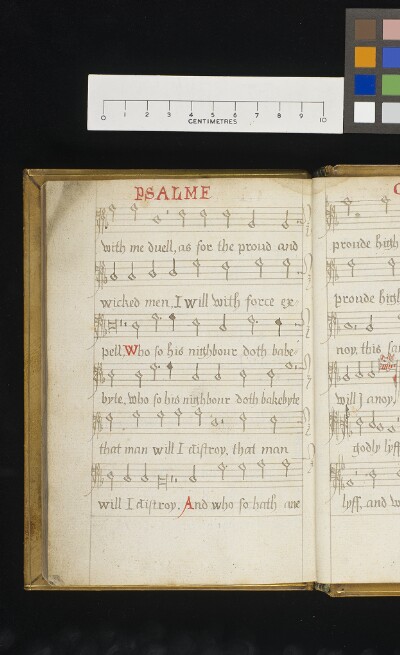 0 1 2 3 4 5 6 7 8 9 10
CENTIMETRES
PSALME
with me duell, as for the proud and
wicked men, I will with force ex-
pell. Who so his nighbour doth bake-
byte, who so his nighbour doth bakebyte
that man will I distroy, that man
will I distroy. And who so hath ane
proude high
proude high
noy, this
will I anoy,
godly lyff
lyff, and w